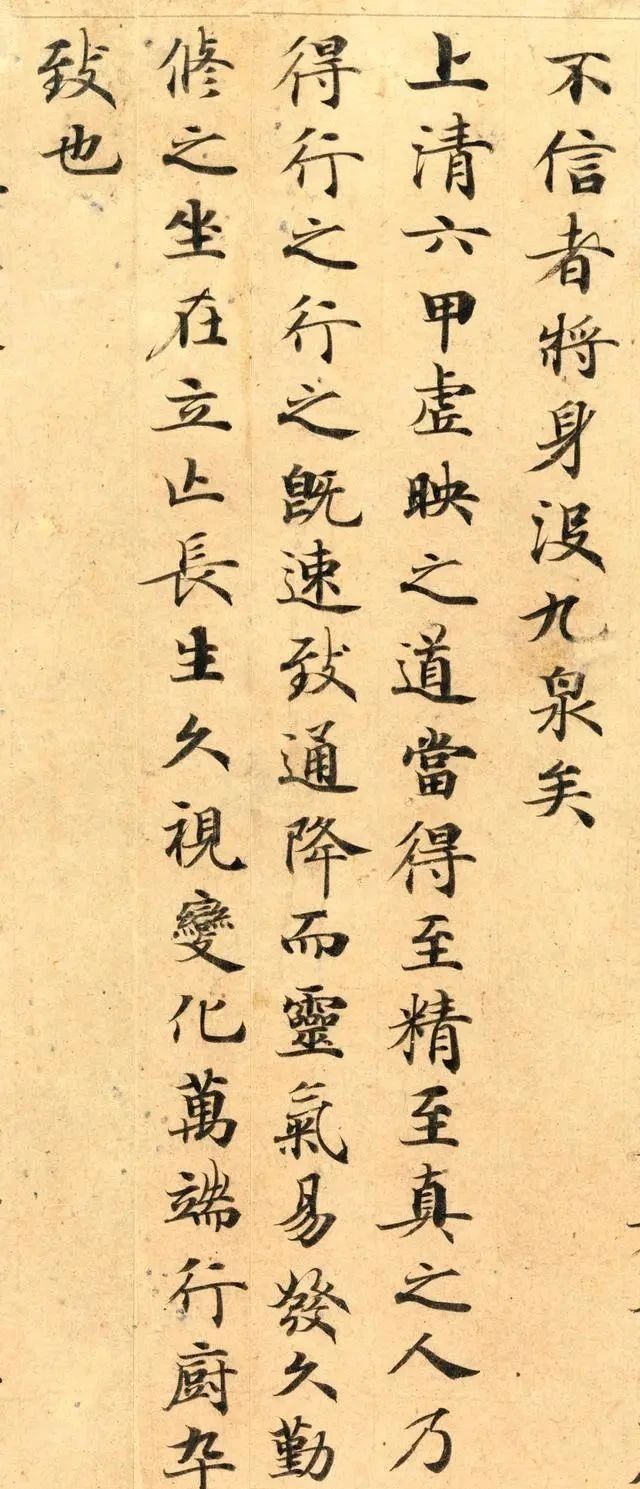 不信者將身没九泉矣
上清六甲虛映之道當得至精至真之人乃
得行之行之既速致通降而靈氣易發久勤
修之坐在立亡長生久視變化萬端行廚卒
致也